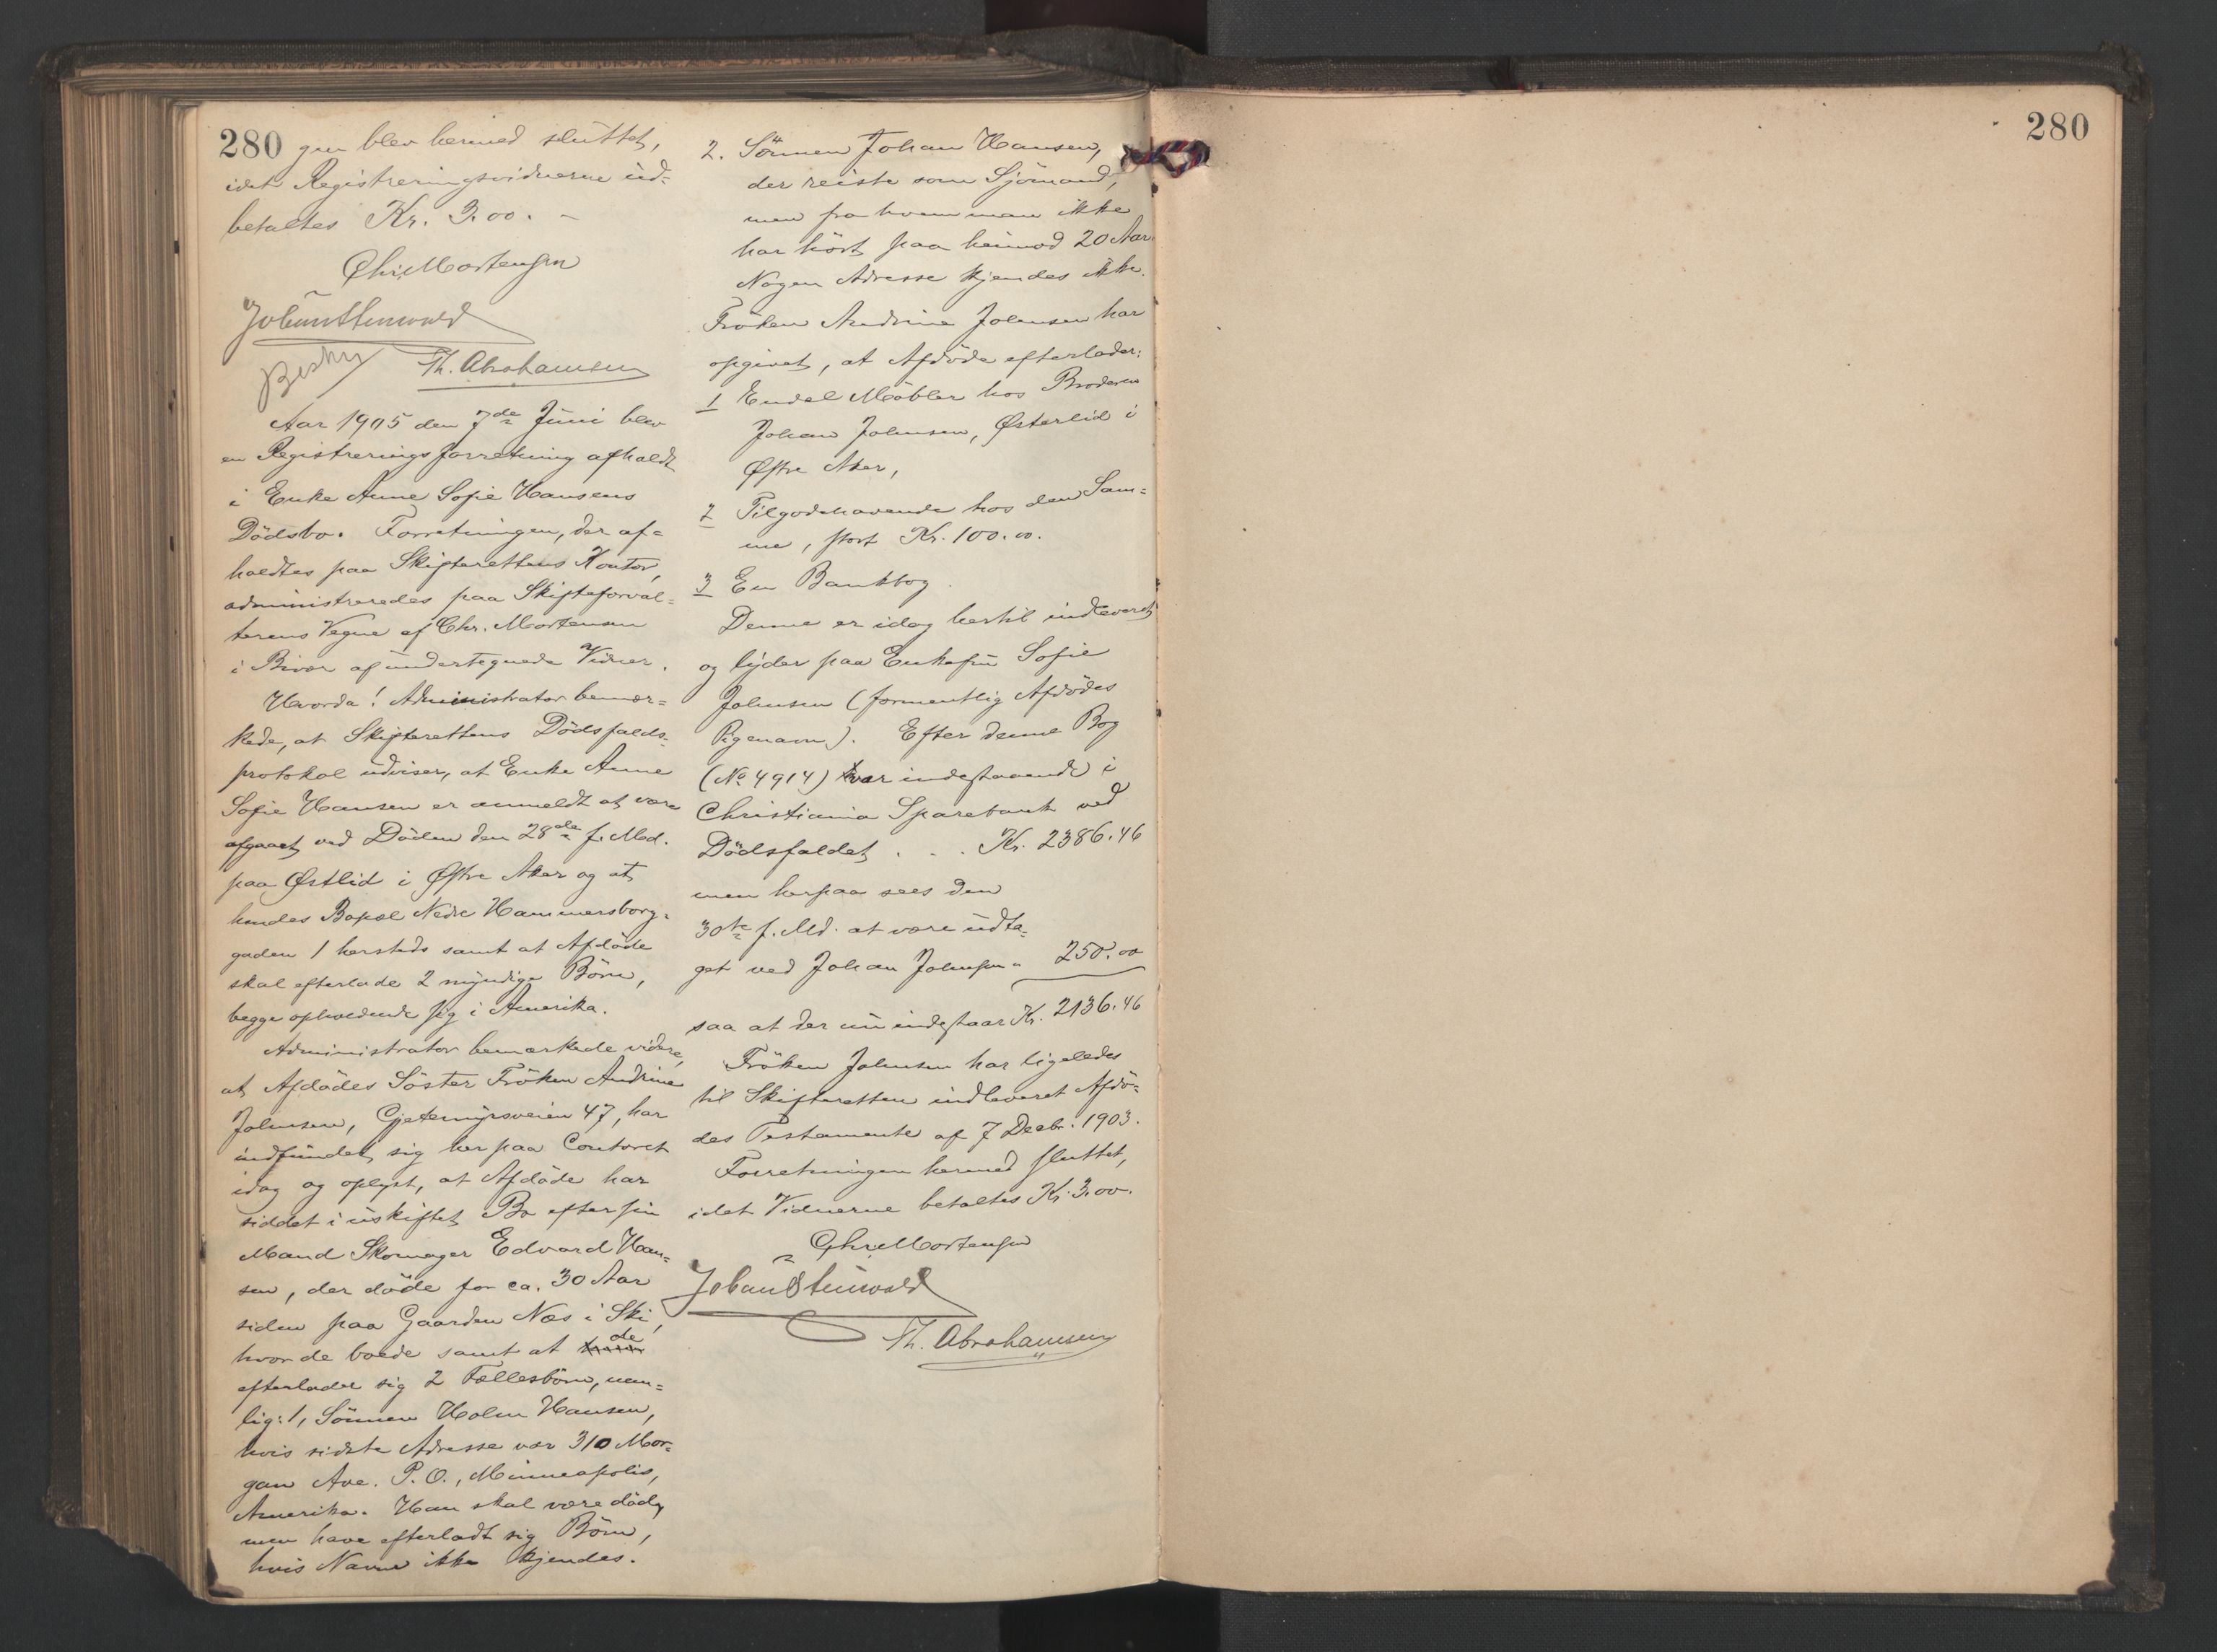 280 gen blev hermed sluttet,
idet Registreringsvidnerne ud-
betaltes Kr. 3.00. -
Chr. Mortensen
Johan Stenwald
Th. Abrahamsen
Aar 1905 den 7de Juni blev
en Registreringsforretning afholdt
i Enke Anne Sofie Hansens
Dödsbo. Forretningen, der af-
holdtes paa Skifterettens Kontor,
administreredes paa Skifteforval-
terens Vegne af Chr. Mortensen
i Bivær af undertegnede Vidner.
Hvorda! Administrator bemær-
kede, at Skifterettens Dödsfalds-
protokol udviser, at Enke Anne
Sofie Hansen er anmeldt at være
afgaaet ved Döden den 28de f. Md.
paa Østlid i Østre Aker og at
hendes Bopæl Nedre Hammersborg-
gaden 1 hersteds samt at Afdöde
skal efterlade 2 myndige Börn,
begge opholdende sig i Amerika.
Administrator bemærkede videre,
at Afdödes Söster Fröken Andrine
Johnsen, Gjetemyrsveien 47, har
indfundet sig her paa Contoret
idag og oplyst, at Afdöde har
siddet i uskiftet Bo efter sin
Mand Skomager Edvard Han-
sen, der döde for ca. 30 Aar
siden paa Gaarden Næs i Ski,
hvor de boede samt at de
efterlader sig 2 Fællesbörn, nem-
lig: 1, Sönnen Holm Hansen,
hvis sidste Adresse var 310 Mor-
gan Ave. P. O., Minneapolis,
Amerika. Han skal være död,
men have efterladt sig Börn,
hvis Navne ikke kjendes.
2. Sönnen Johan Hansen,
der reiste som Sjömand,
men fra hvem man ikke
har hört paa henimod 20 Aar.
Nogen Adresse kjendes ikke.
Fröken Andrine Johnsen har
opgivet, at Afdöde efterlader:
1 Endel Möbler hos Broderen
Johan Johnsen, Østerlid i
Østre Aker,
2 Tilgodehavende hos den Sam-
me, stort Kr. 100.00.
3 En Bankbog.
Denne er idag hertil indleveret
og lyder paa Enkefru Sofie
Johnsen (formentlig Afdödes
Pigenavn). Efter denne Bog
(No 4914) var indestaaende i
Christiania Sparebank ved
Dödsfaldet . . . Kr. 2386.46
men herpaa sees den
30te f. Md. at være udta-
get ved Johan Johnsen " 250.00
saa at der nu indestaar Kr. 2136.46
Fröken Johnsen har ligeledes
til Skifteretten indleveret Afdö-
des Testamente af 7 Decbr. 1903.
Forretningen hermed sluttet,
idet Vidnerne betaltes Kr. 3.00.
Chr. Mortensen
Johan Stenwald
Th. Abrahamsen
280